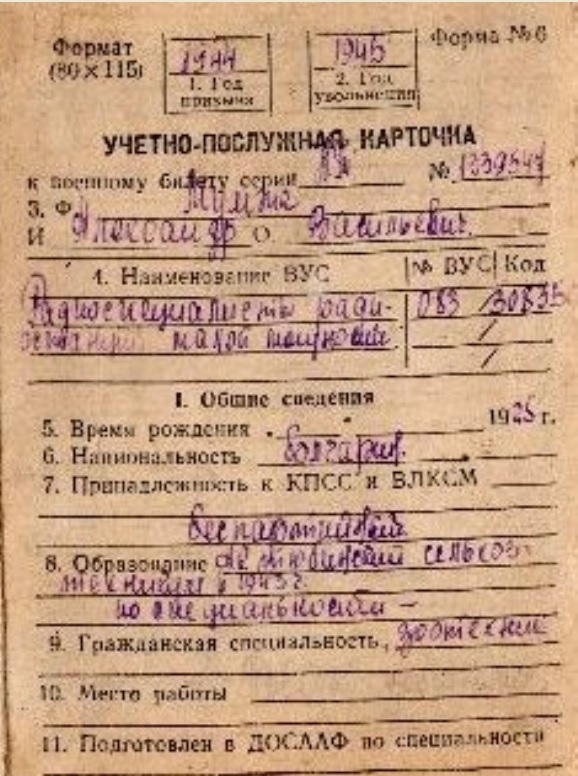 Формат
(80×115)
1944
1. Год
призыва
1945
2. Год
увольнения
Форма № 6
УЧЕТНО-ПОСЛУЖНАЯ КАРТОЧКА
к военному билету серии №
3. Ф.
И Александр О. Васильевич.
4. Наименование ВУС № ВУС Код
Радиоспециалисты ради-
останций малой мощности 083
I. Общие сведения
5. Время рождения 1925 г.
6. Национальность болгарин.
7. Принадлежность к КПСС и ВЛКСМ
беспартийный
8. Образование сельхоз.
техникум в 1943 г.
по специальности –
9. Гражданская специальность, зоотехник
10. Место работы
11. Подготовлен в ДОСААФ по специальности